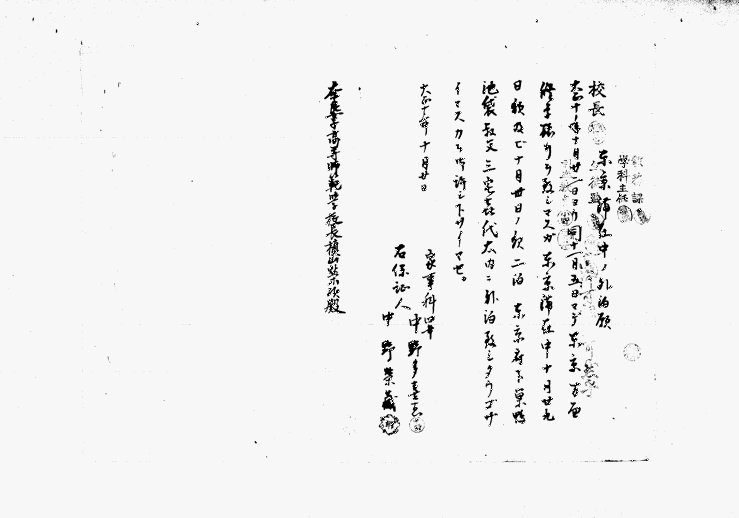 東京滞在中ノ外泊願
大正十年十月廿二日ヨリ同十一月五日マデ東京方面
修学旅行ヲ致シマスガ東京滞在中十月廿九
日夜及ビ十月卅日ノ夜二泊東京府下巣鴨
池袋叔父三宅喜代太内ニ外泊致シタウゴザ
イマスカラ御許シ下サイマセ。
大正十年十月廿日
家事科四年
中野
右保証人
中野栄蔵
奈良女子高等師範学校長槇山栄次殿
校長
教務課
学科主任